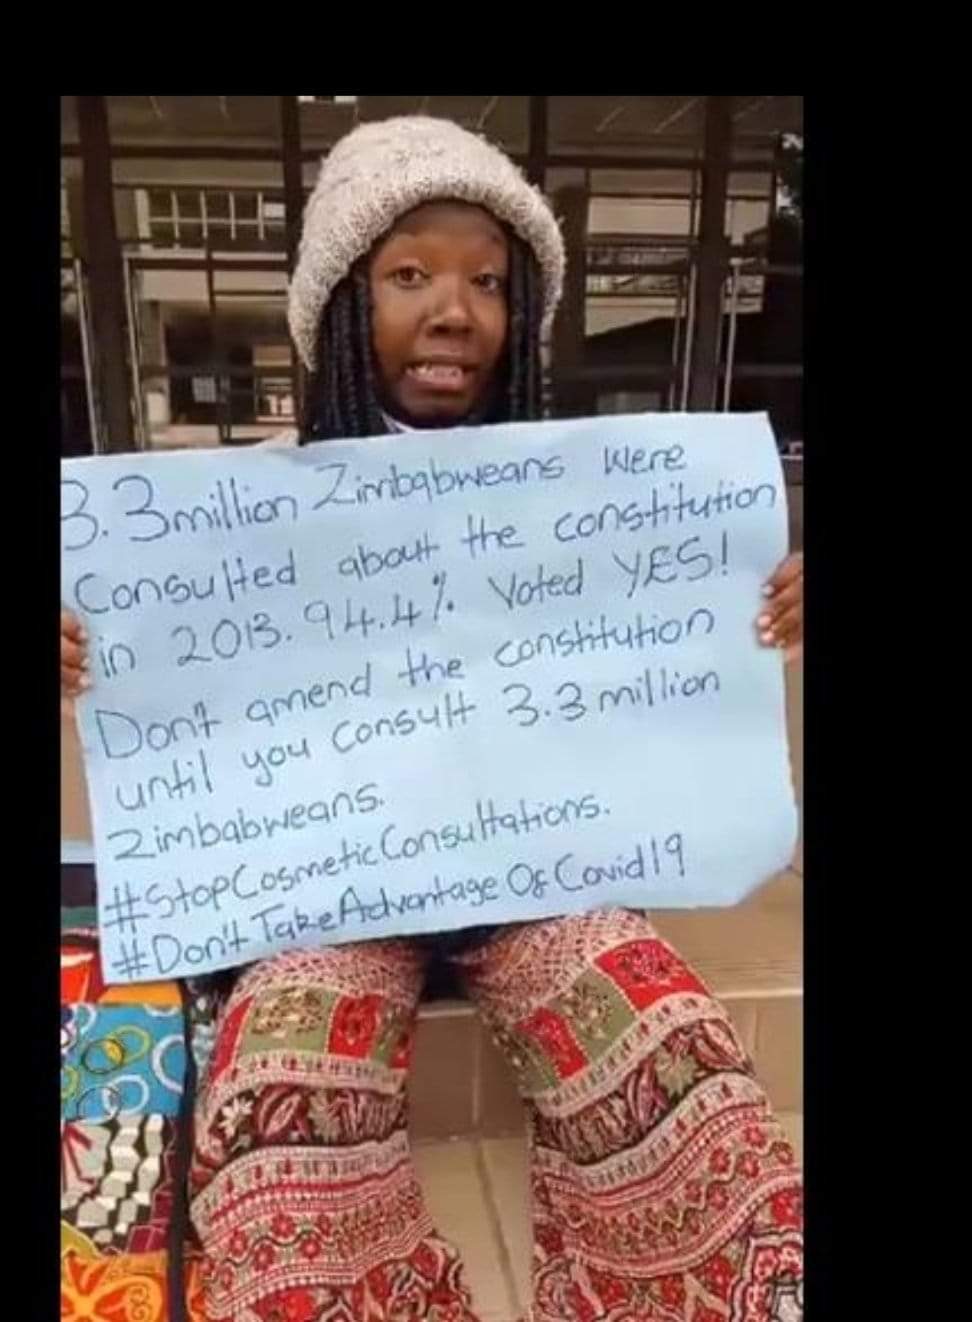 3.3million Zimbabweans were
Consulted about the constitution
in 2013. 94.4% Voted YES!
Don't amend the constitution
until you consult 3.3 million
Zimbabweans.
#StopCosmeticConsultations.
#Don't TakeAdvantage Of Covid19